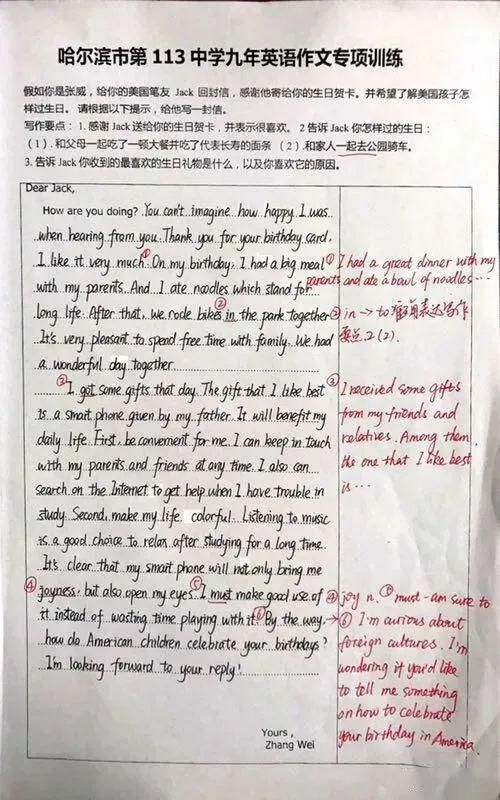 哈尔滨市第 113 中学九年英语作文专项训练
假如你是张威，给你的美国笔友 Jack 回封信，感谢他寄给你的生日贺卡。并希望了解美国孩子怎
样过生日。 请根据以下提示，给他写一封信。
写作要点：1. 感谢 Jack 送给你的生日贺卡，并表示很喜欢。 2 告诉 Jack 你怎样过的生日：
（1）. 和父母一起吃了一顿大餐并吃了代表长寿的面条 （2）.和家人一起去公园骑车。
3. 告诉 Jack 你收到的最喜欢的生日礼物是什么，以及你喜欢它的原因。
Dear Jack,
How are you doing? You can't imagine how happy I was
when hearing from you. Thank you for your birthday card,
I like it very much. ① On my birthday, I had a big meal
with my parents. And I ate noodles which stand for
long life. After that, we rode bikes ② in the park together
It's very pleasant to spend free time with family. We had
a wonderful day together
③ I got some gifts that day. The gift that I like best
is a smart phone given by my father. It will benefit my
daily life. First, be convenient for me. I can keep in touch
with my parents and friends at any time. I also can
search on the Internet to get help when I have trouble in
study. Second, make my life colorful. Listening to music
is a good choice to relax after studying for a long time.
It's clear that my smart phone will not only bring me
④ joyness, but also open my eyes. ⑤ I must make good use of
it instead of wasting time playing with it. ⑥ By the way,
how do American children celebrate your birthdays?
I'm looking forward to your reply!
Yours,
Zhang Wei
① I had a great dinner with my
parents and ate a bowl of noodles...
② in → to 准确表达写作
要点 2 (2).
③ I received some gifts
from my friends and
relatives. Among them,
the one that I like best
is ...
④ joy n. ⑤ must - am sure to
→ ⑥ I'm curious about
foreign cultures. I'm
wondering if you'd like
to tell me something
on how to celebrate
your birthday in America.